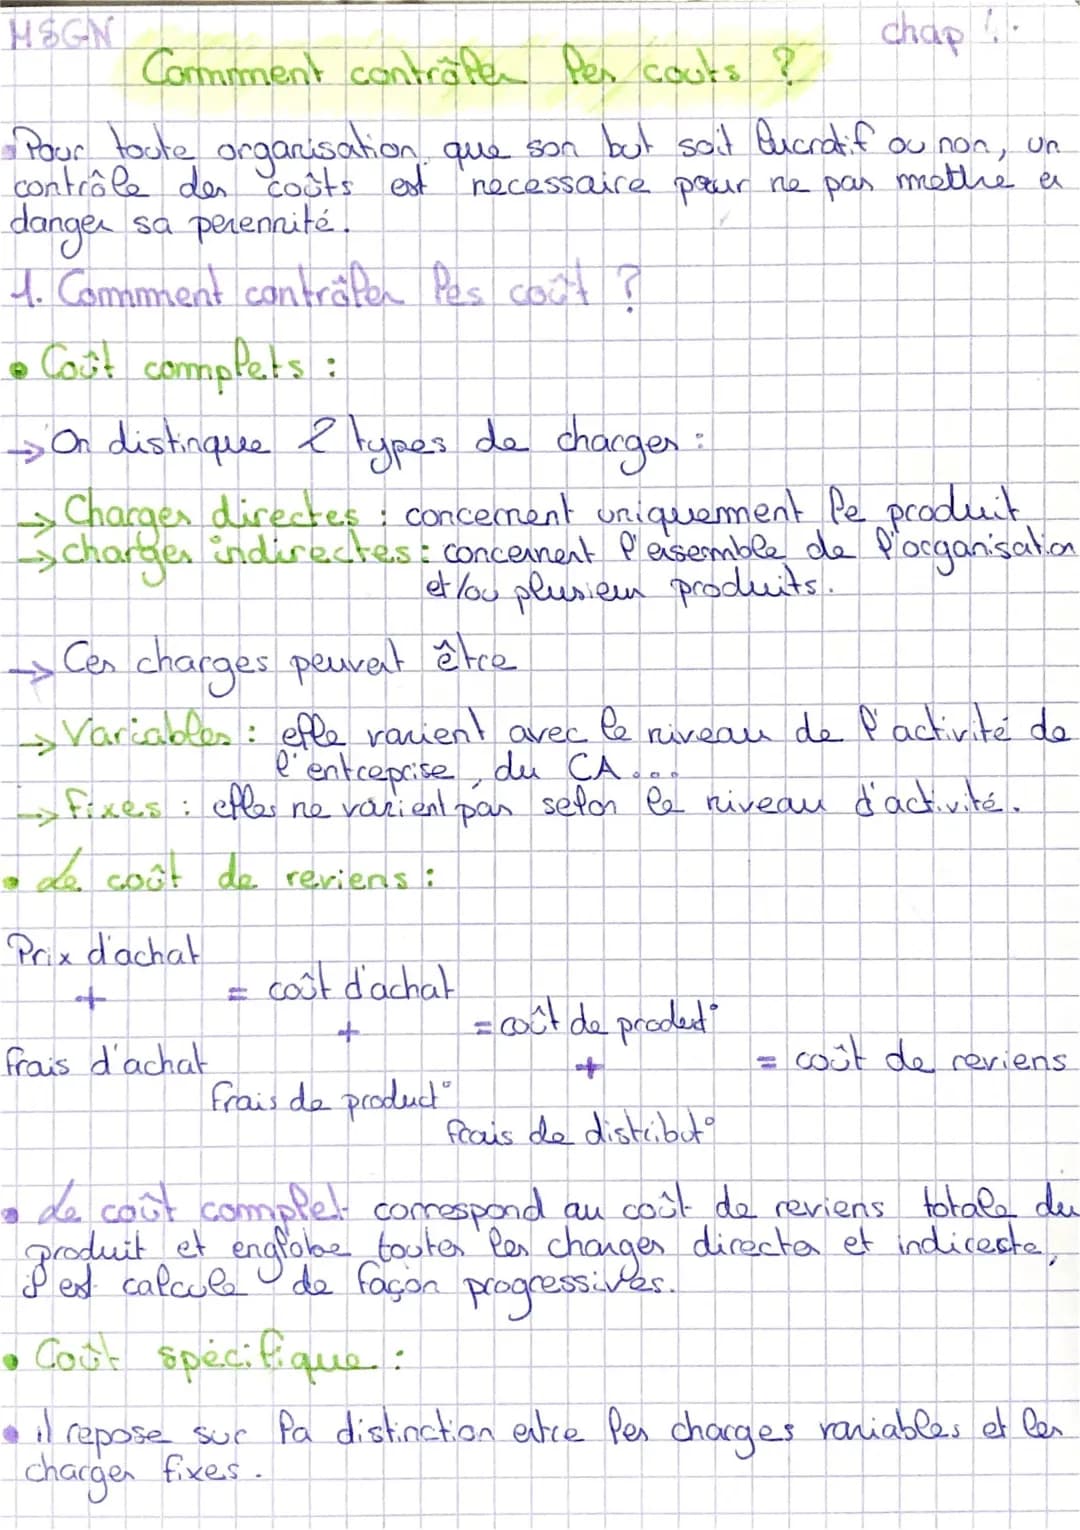 MSGN
chap
Comment contrôler les couts ?
Pour toute organisation, que son but soit lucratif ou non, un
contrôle des coûts est necessaire pour ne pas mettre en
danger sa perennité.
1. Comment contrôler les coût ?
• Coût complets :
→ On distingue 2 types de charges :
→ Charges directes : concernent uniquement le produit
→ charges indirectes : concernent l'ensemble de l'organisation
et/ou plusieurs produits.
→ Ces charges peuvent être
→ Variables : elle varient avec le niveau de l'activité de
l'entreprise, du CA...
→ fixes : elles ne varient pas selon le niveau d'activité.
• Le coût de reviens :
Prix d'achat
+ = coût d'achat
+ = coût de product°
frais d'achat + = coût de reviens
frais de product°
frais de distribut°
• Le coût complet correspond au coût de reviens totale du
produit et englobe toutes les charges directes et indirecte,
il est calcule de façon progressives.
• Coût spécifique :
• il repose sur la distinction entre les charges variables et les
charges fixes.